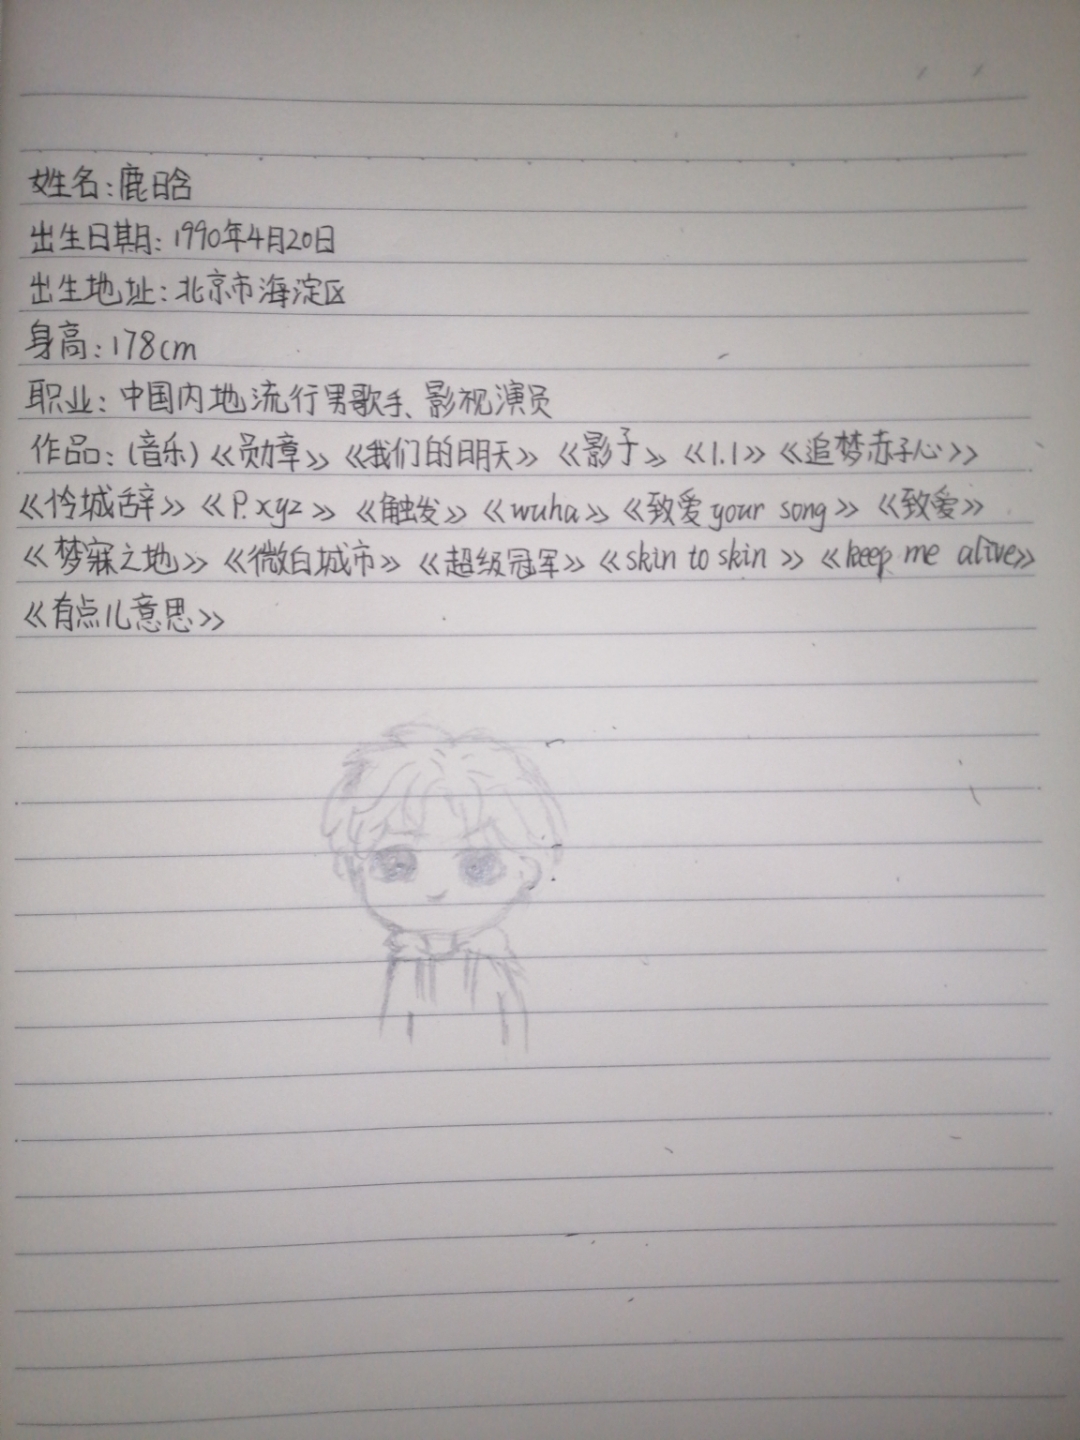 姓名:鹿晗
出生日期:1990年4月20日
出生地址:北京市海淀区
身高:178cm
职业:中国内地流行男歌手、影视演员
作品:(音乐)《勋章》《我们的明天》《影子》《1.1》《追梦赤子心》
《怜城辞》《P.xyz》《触发》《wuha》《致爱your song》《致爱》
《梦寐之地》《微白城市》《超级冠军》《skin to skin》《keep me alive》
《有点儿意思》